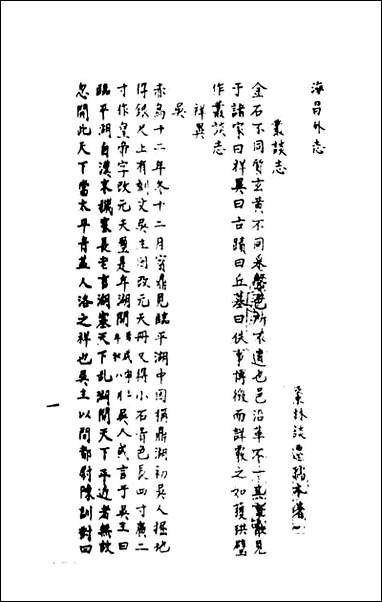 海昌外志
棗林談遷孺木著
叢談志
金石不同質玄黃不同采繫邑所不遺也邑沿革不一其事散見
于諸家曰祥異曰古蹟曰丘墓曰佚事博徵而詳載之如獲珙璧
作叢談志
祥異
吳
赤烏十二年冬十二月寶鼎見臨平湖中因稱鼎湖初吳人掘地
得銀尺上有刻文吳主因改元天冊又得小石青色長四寸廣二
寸作皇帝字改元天璽是年湖開吳人或言于吳主曰
臨平湖自漢末穢塞長老言湖塞天下亂湖開天下平近者無故
忽開此天下當太平青蓋入洛之祥也吳主以問都尉陳訓對曰
一